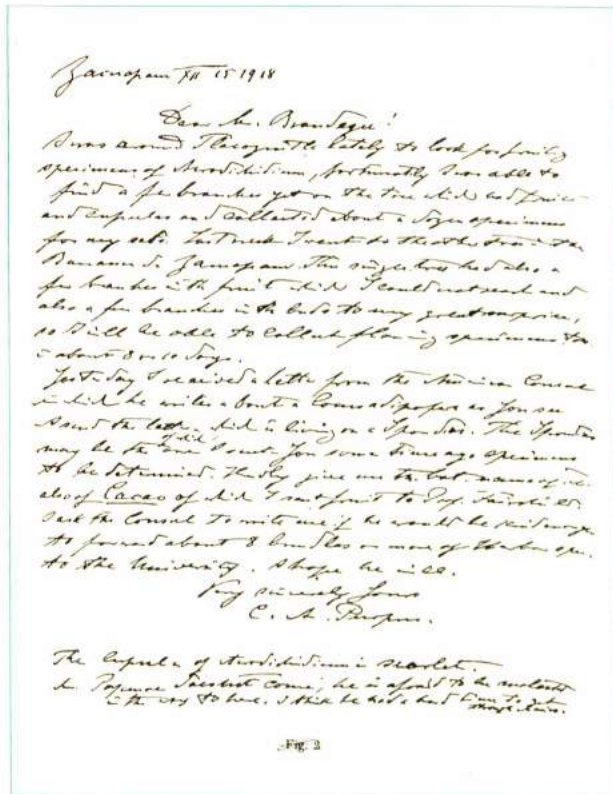 Zacuapam XII 15 1918
Dear Mr. Brandegee!
I was around lately to look for fruiting
specimens of, fortunately I was able to
find a few branches yet on the tree which had
and cupulas and collected about a dozen specimens
for my sets. Last week I went to the other tree in the
Zacuapam. This single tree had also a
few branches with fruit which I could not reach and
also a few branches in the buds to my great surprise,
so I will be able to collect flowering specimens too
in about 8 or 10 days.
Yesterday I received a letter from the American Consul
in which he writes about a as you see
I send the letter, which is living on a Spondias. The Spondias
may be the one I sent you some time ago specimens
to be determined. Kindly give me the bot. names of it
also of Cacao of which I sent fruit to Prof.
I ask the Consul to write me if he would be kind enough
to forward about 8 bundles or more of
to the University. I hope he will.
Very sincerely yours
C. A. Purpus.
The cupula of is scarlet.
doesn't come; he is afraid to be molested
in the way to here. I think he had a hard time to get
through
Fig. 2